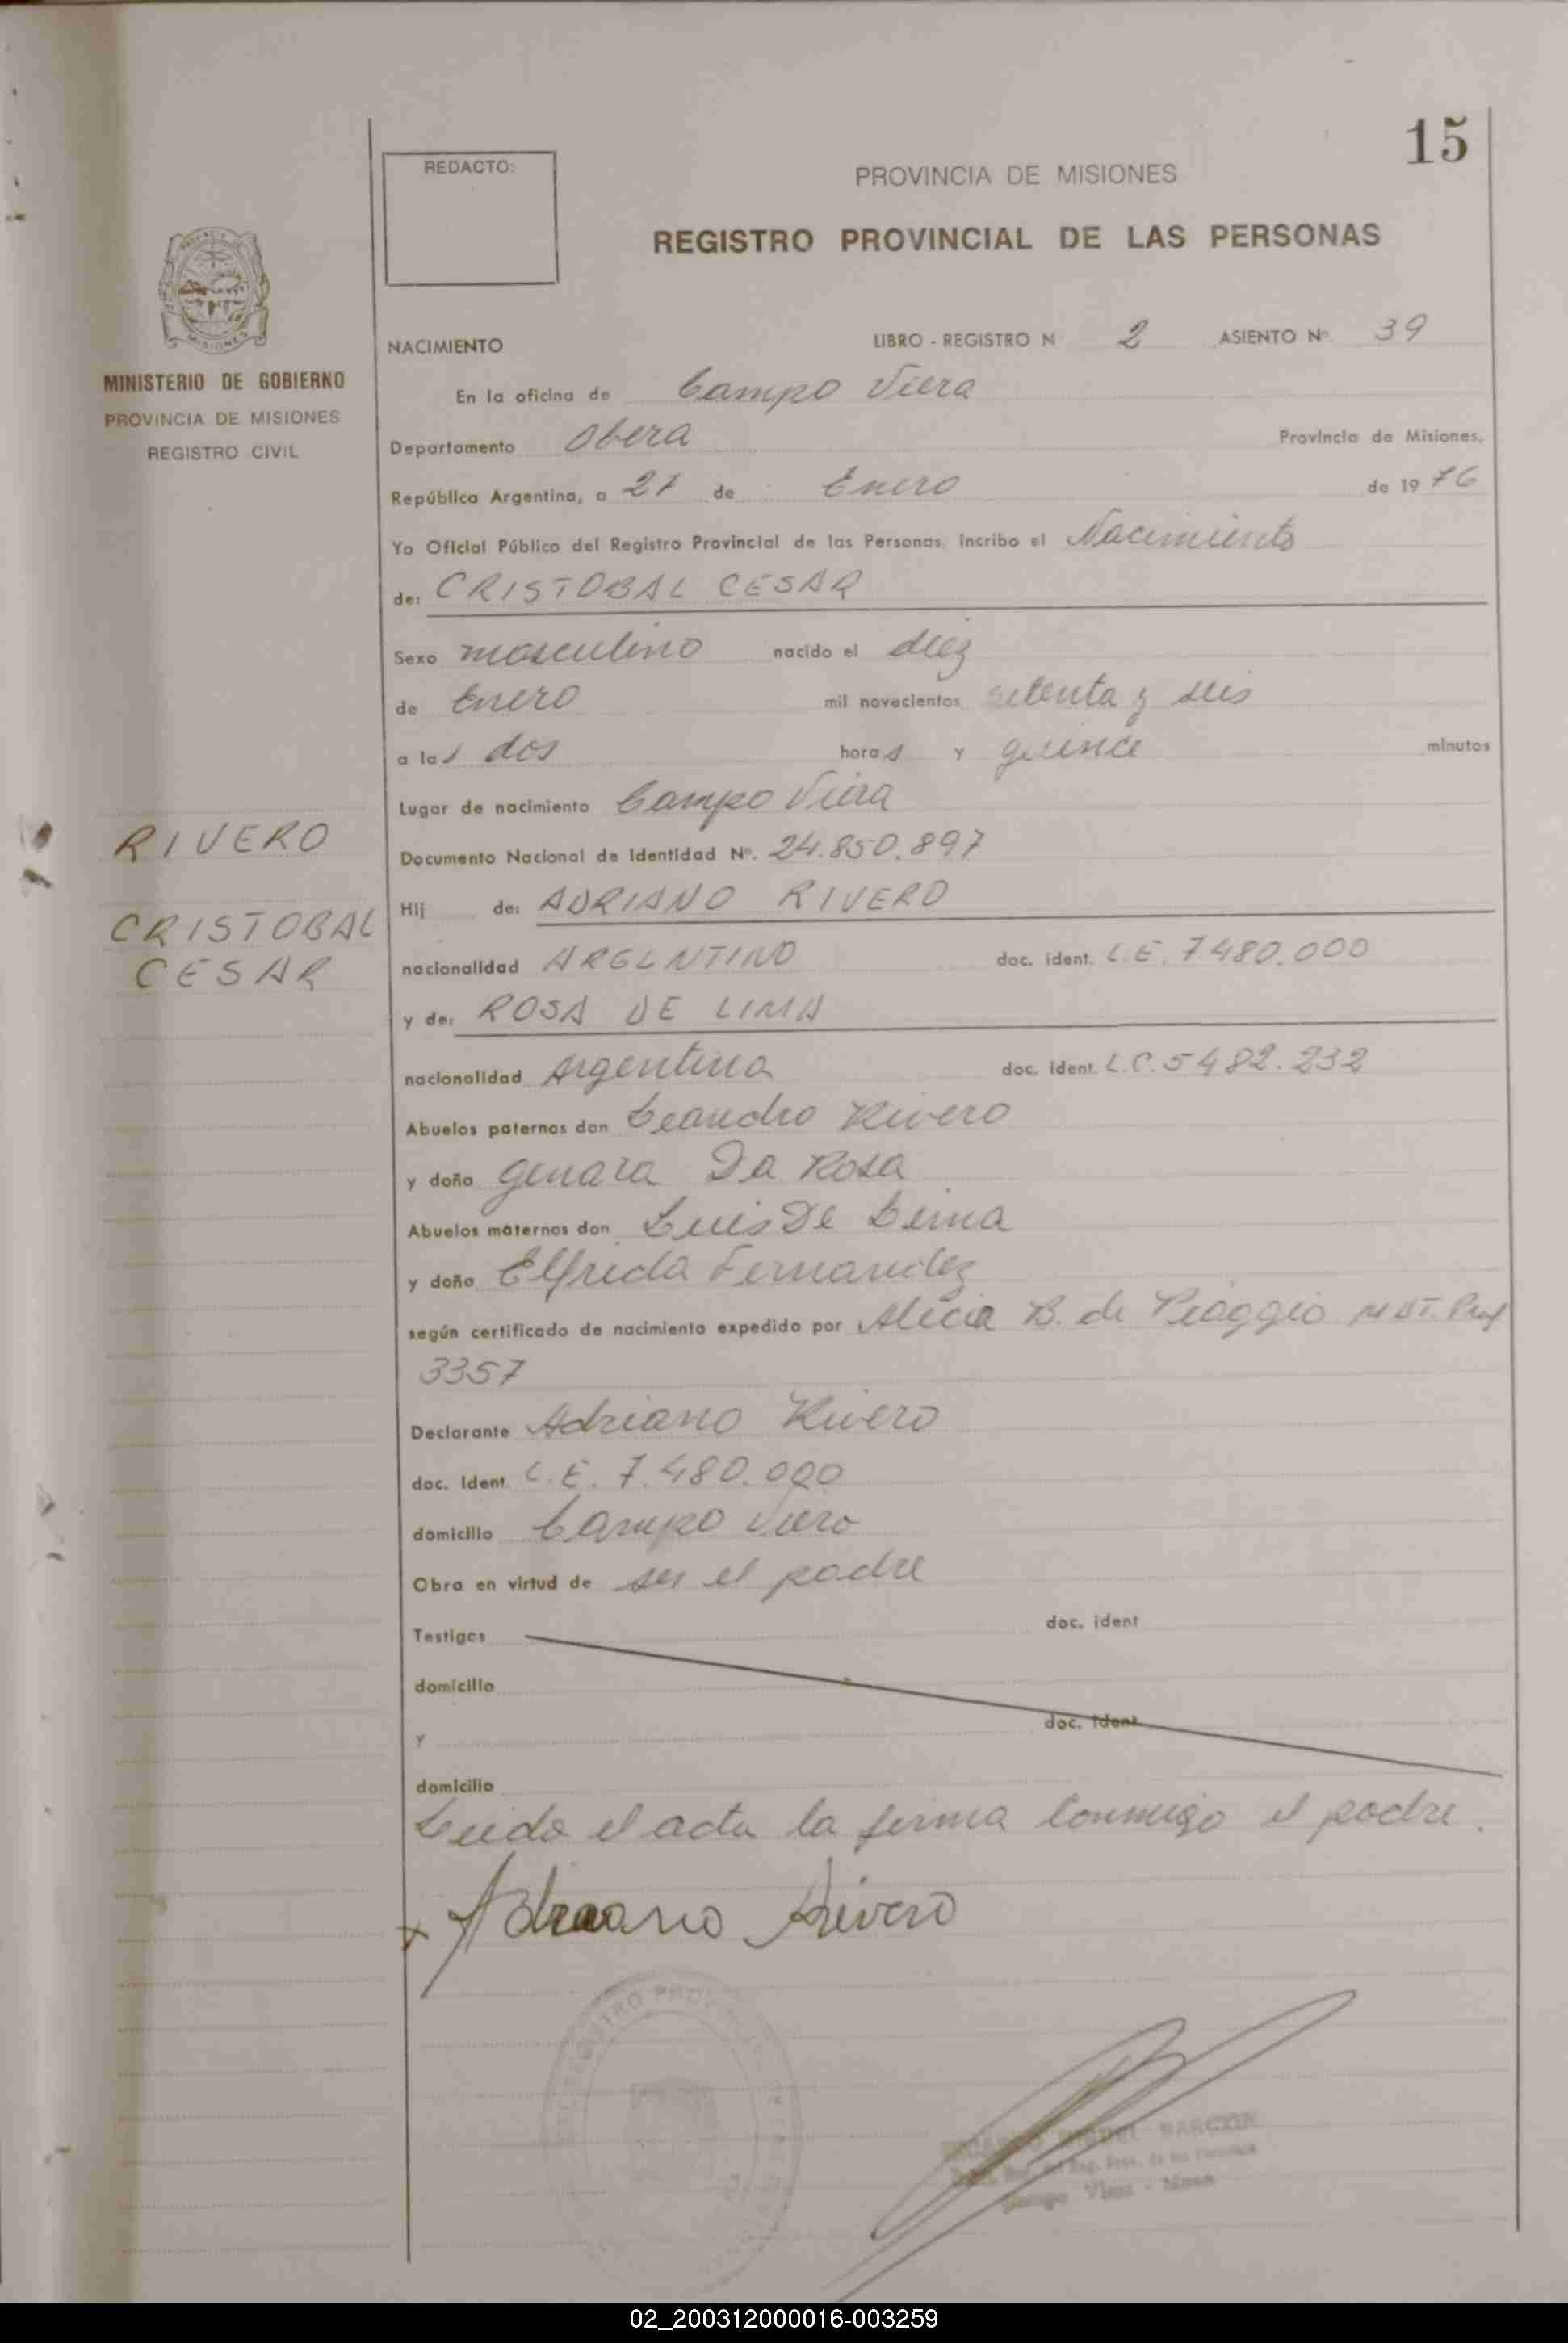 15
REDACTO:
PROVINCIA DE MISIONES
REGISTRO PROVINCIAL DE LAS PERSONAS
MISIONES
MINISTERIO DE GOBIERNO
PROVINCIA DE MISIONES
REGISTRO CIVIL
NACIMIENTO LIBRO - REGISTRO N 2 ASIENTO Nº. 39
En la oficina de Campo Viera
Departamento Obera Provincia de Misiones,
República Argentina, a 27 de Enero de 19 76
Yo Oficial Público del Registro Provincial de las Personas, incribo el Nacimiento
de: CRISTOBAL CESAR
Sexo masculino nacido el diez
de Enero mil novecientos setenta y seis
a las dos horas y quince minutos
Lugar de nacimiento Campo Viera
RIVERO
Documento Nacional de Identidad Nº. 24.850.897
Hij de: ADRIANO RIVERO
CRISTOBAL
CESAR
nacionalidad ARGENTINO doc. ident. L.E. 7.480.000
y de: ROSA DE LIMA
nacionalidad Argentina doc. ident. L.C. 5482.232
Abuelos paternos don Leandro Rivero
y doña Genara Da Rosa
Abuelos maternos don Luis De Lima
y doña Elfrida Fernandez
según certificado de nacimiento expedido por Alicia B. de Piaggio MAT. Prof
3357
Declarante Adriano Rivero
doc. Ident. L.E. 7.480.000
domicilio Campo Viera
Obra en virtud de ser el padre
Testigos doc. ident
domicilio
y doc. ident
domicilio
Leida el acta la firma conmigo el padre.
x Adriano Rivero
REGISTRO PROV
MIGUEL
Campo Viera - Mnes
02_200312000016-003259